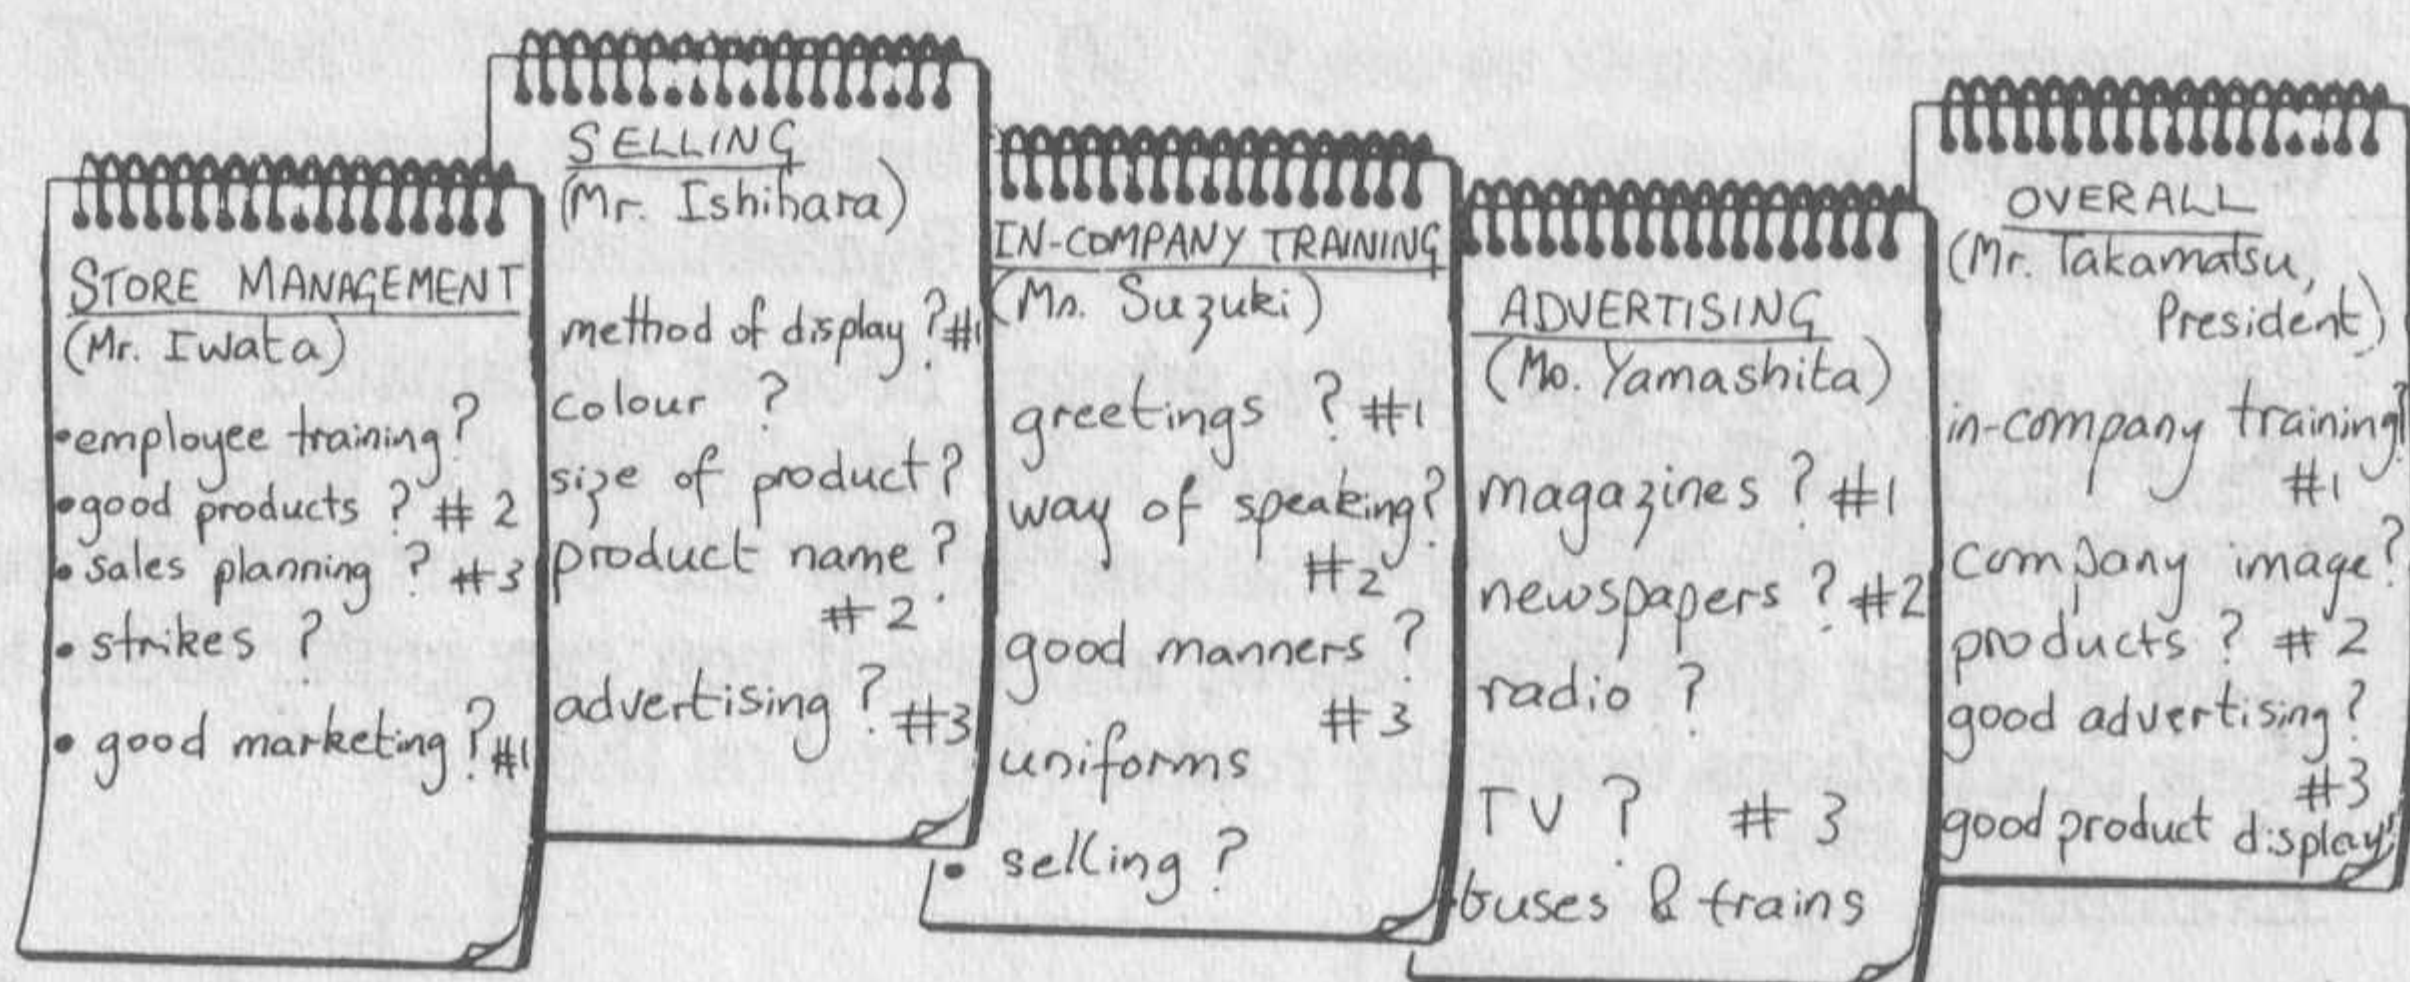 STORE MANAGEMENT
(Mr. Iwata)
•employee training?
•good products ? #2
•sales planning ? #3
•strikes ?
•good marketing ? #1
SELLING
(Mr. Ishihara)
method of display ? #1
colour ?
size of product?
product name ?
#2
advertising ? #3
IN-COMPANY TRAINING
(Mr. Suzuki)
greetings ? #1
way of speaking?
#2
good manners ?
#3
uniforms
• selling ?
ADVERTISING
(Mo. Yamashita)
magazines ? #1
newspapers ? #2
radio ?
TV ? #3
buses & trains
OVERALL
(Mr. Takamatsu,
President)
in-company training?
#1
company image?
products ? #2
good advertising?
#3
good product display?